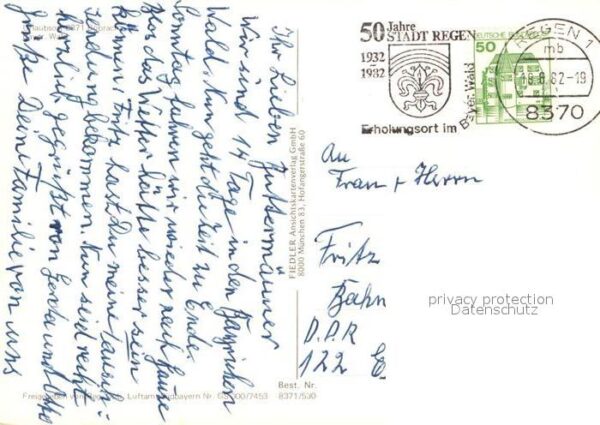 Ihr Lieben
Wir sind 14 Tage in den Bayrischen
Wald. Nun geht die Zeit zu Ende.
Sonntag fahren wir wieder nach Hause
das Wetter hätte besser sein
können. Fritz hast du meine
bekommen. Nun seid recht
herzlich gegrüßt von Gerda und Otto
Grüße Deine Familie von uns
FIEDLER Ansichtskartenverlag GmbH
8000 München 83, Hofangerstraße 60
Best. Nr.
8371/530
50 Jahre
STADT REGEN
1932
1982
Erholungsort im Bayer Wald
50
REGEN 1
mb
18.8.82-19
8370
An
Frau + Herrn
Fritz
Bahn
D.D.R
122 E
privacy protection
Datenschutz